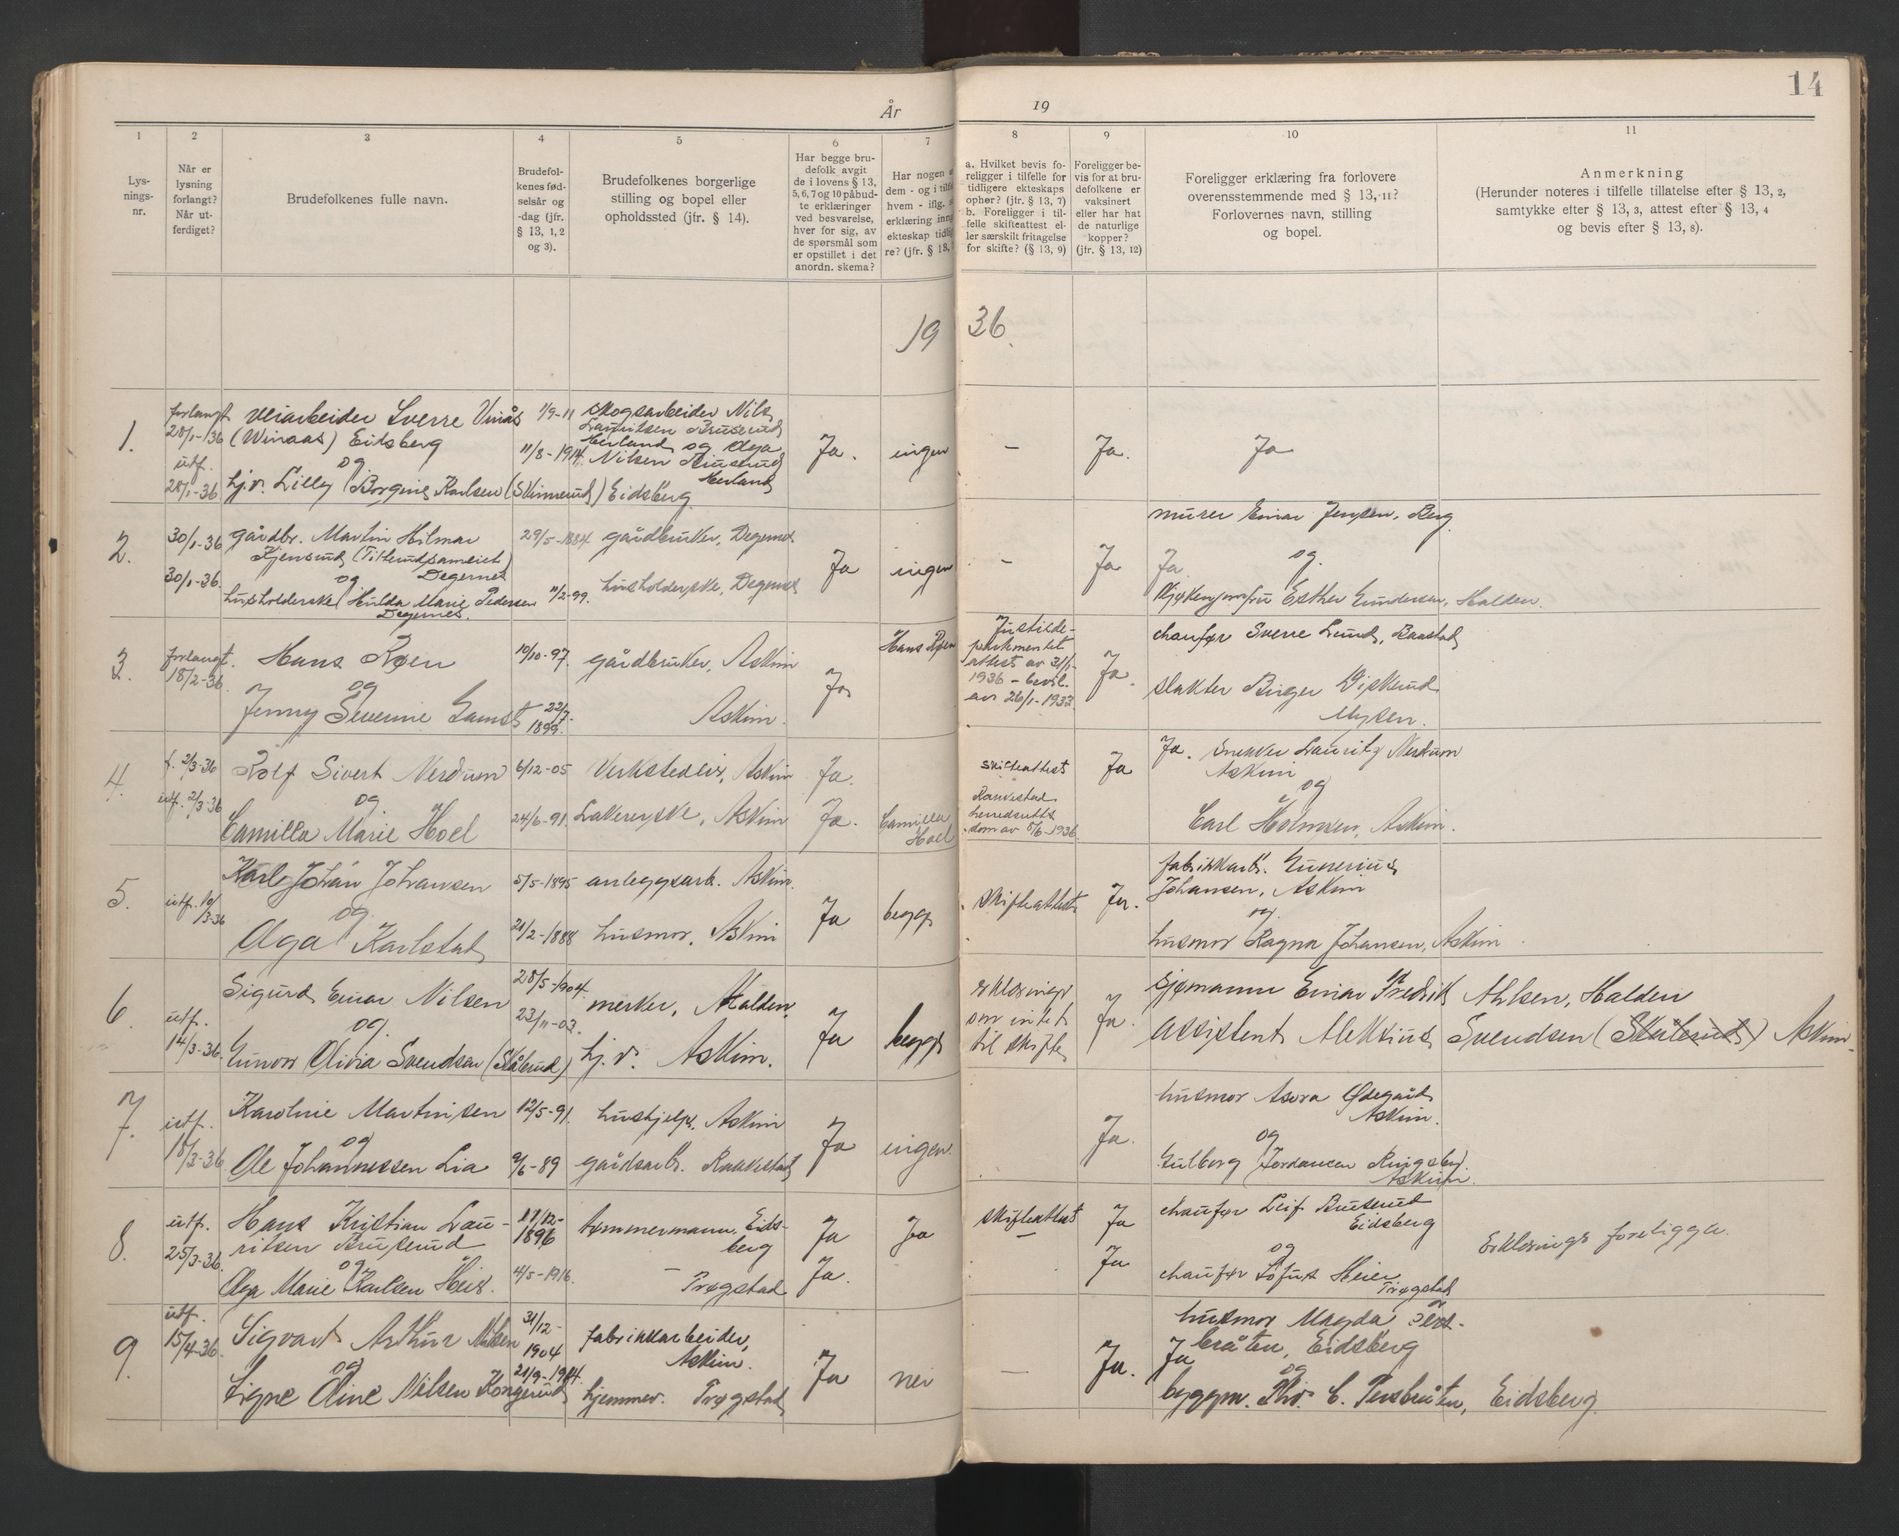 14
År 19
1 2 3 4 5 6 7 8 9 10 11
Lys-
nings-
nr.
Når er
lysning
forlangt?
Når ut-
ferdiget?
Brudefolkenes fulle navn.
Brudefol-
kenes fød-
selsår og
-dag (jfr.
§ 13, 1, 2
og 3).
Brudefolkenes borgerlige
stilling og bopel eller
opholdssted (jfr. § 14).
Har begge bru-
defolk avgit
de i lovens § 13,
5, 6, 7 og 10 påbud-
te erklæringer
ved besvarelse,
hver for sig, av
de spørsmål som
er opstillet i det
anordn. skema?
Har nogen
dem - og i tilf
hvem - iflg.
erklæring inng
ekteskap tidlig
re? (jfr. § 13,
a. Hvilket bevis fo-
religger i tilfelle for
tidligere ekteskaps
ophør? (jfr. § 13, 7)
b. Foreligger i til-
felle skifteattest el-
ler særskilt fritagelse
for skifte? (§ 13, 9)
Foreligger be-
vis for at bru-
defolkene er
vaksinert
eller har hat
de naturlige
kopper?
(jfr. § 13, 12)
Foreligger erklæring fra forlovere
overensstemmende med § 13, 11?
Forlovernes navn, stilling
og bopel.
Anmerkning
(Herunder noteres i tilfelle tillatelse efter § 13, 2,
samtykke efter § 13, 3, attest efter § 13, 4
og bevis efter § 13, 8).
19 36.
1.
forlangt
28/1-36
utf.
28/1-36
veiarbeider Sverre Vinås
(Winaas) Eidsberg
og
hj.v. Lilly Borgine Karlsen (Skinnerud) Eidsberg
1/9-11
11/8-1914
skogsarbeider Nils
Lauritsen Bruserud
Herland og Olga
Nilsen Bruserud
Herland
Ja.
ingen
-
Ja.
Ja
2.
30/1-36
30/1-36.
gårdbr. Martin Hilmar
Kjensrud (Titterudsameiet)
Degernes
og
husholderske Hulda Marie Pedersen
Degernes.
29/5-1884
11/2-99.
gårdbruker, Degernes
husholderske, Degernes
Ja
ingen
-
Ja
murer Einar Jensen, Berg
Ja og
kjøkenjomfru Esther Gundersen, Halden.
3.
forlangt.
18/2-36.
Hans Røen
og
Jenny Severine Gamst
10/10-97.
22/7-
1899.
gårdbruker, Askim
Askim.
Ja
Hans Røen
Justisde-
partementet
attest av 31/1-
1936 - bevil.
av 26/1-1932
Ja.
chaufør Sverre Lund, Baastad
slakter Birger
Mysen.
4.
f. 2/3-36
utf. 2/3-36
Rolf Sivert Nerdum
og
Camilla Marie Hoel
6/12-05
24/6-91.
Verkstedeier, Askim
Lakererske, Askim
Ja.
Ja.
Camilla
Hoel
skifteattest
Rakkestad
herredsretts
dom av 5/6-1936.
Ja
Ja. snekker Lauritz Nerdum
Askim
og
Carl Holmsen, Askim.
5.
utf. 10/
3-36
Karl Johan Johansen
og.
Olga Karlstad
5/5-1895
21/2-1888
anleggsarb. Askim.
husmor, Askim
Ja
begge
skifteattest
Ja.
fabrikkarb. Gunerius
Johansen, Askim
og.
husmor Ragna Johansen, Askim
6.
utf.
14/3-36.
Sigurd Einar Nilsen
og.
Gunvor Olivia Svendsen (Skålerud)
28/5-1904.
23/11-03.
merker, Halden.
hj.v. Askim.
Ja
begge
erklæringer
om intet
til skifte
Ja.
sjømann Einar Fredrik Ahlsen, Halden
og
Assistent Aleksius Svendsen (Skålerud) Askim.
7.
utf.
18/3-36.
Karoline Martinsen
og
Ole Johannessen Lia
12/5-91.
9/6-89
hushjelp. Askim
gårdsarb. Rakkestad
Ja
ingen.
Ja.
husmor Asora Ødegård
Askim.
og
Gulborg Jordansen Ringsby.
Askim.
8.
utf.
25/3-36.
Hans Kristian Lau-
ritsen Bruserud
og
Olga Marie Karlsen Heier.
17/12-
1896
4/5-1916.
tømmermann, Eids-
berg
- Trøgstad
Ja
Ja.
Ja
skifteattest
Ja
Ja
chaufør Leif Bruserud
Eidsberg
og
chaufør Lofus Heier
Trøgstad
Erklærings foreligger.
9.
utf.
15/4-36.
Sigvart Arthur Nilsen
og
Signe Oline Nilsen Kongerud
31/12-
1904
21/9-1914.
fabrikkarbeider,
Askim.
hjemmev. Trøgstad
Ja
nei
-
Ja.
husmor Magda Pers-
bråten, Eidsberg
Ja og
byggm. Thv. C. Persbråten, Eidsberg.